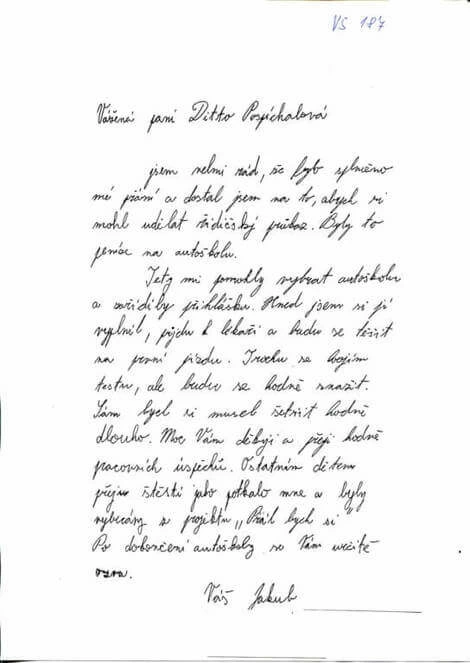 VS 187
Vážená paní Ditto Pospíchalová
jsem velmi rád, že bylo splněno
mé přání a dostal jsem na to, abych si
mohl udělat řidičský průkaz. Byly to
peníze na autoškolu.
Tety mi pomohly vybrat autoškolu
a zařídily přihlášku. Hned jsem si ji
vyplnil, půjdu k lékaři a budu se těšit
na první jízdu. Trochu se bojím
testu, ale budu se hodně snažit.
Sám bych si musel šetřit hodně
dlouho. Moc Vám děkuji a přeji hodně
pracovních úspěchů. Ostatním dětem
přeju štěstí jako potkalo mne a byly
vybrány z projektu „Přál bych si"
Po dokončení autoškoly se Vám určitě
ozvu.
Váš Jakub